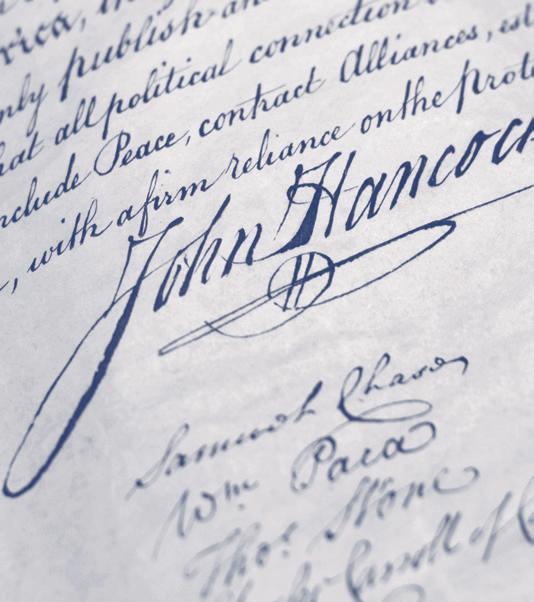 only publish and
that all political connection
include Peace, contract Alliances, est
, with a firm reliance on the prote
John Hancock
Samuel Chase
Wm Paca
Thos Stone
Carroll of C